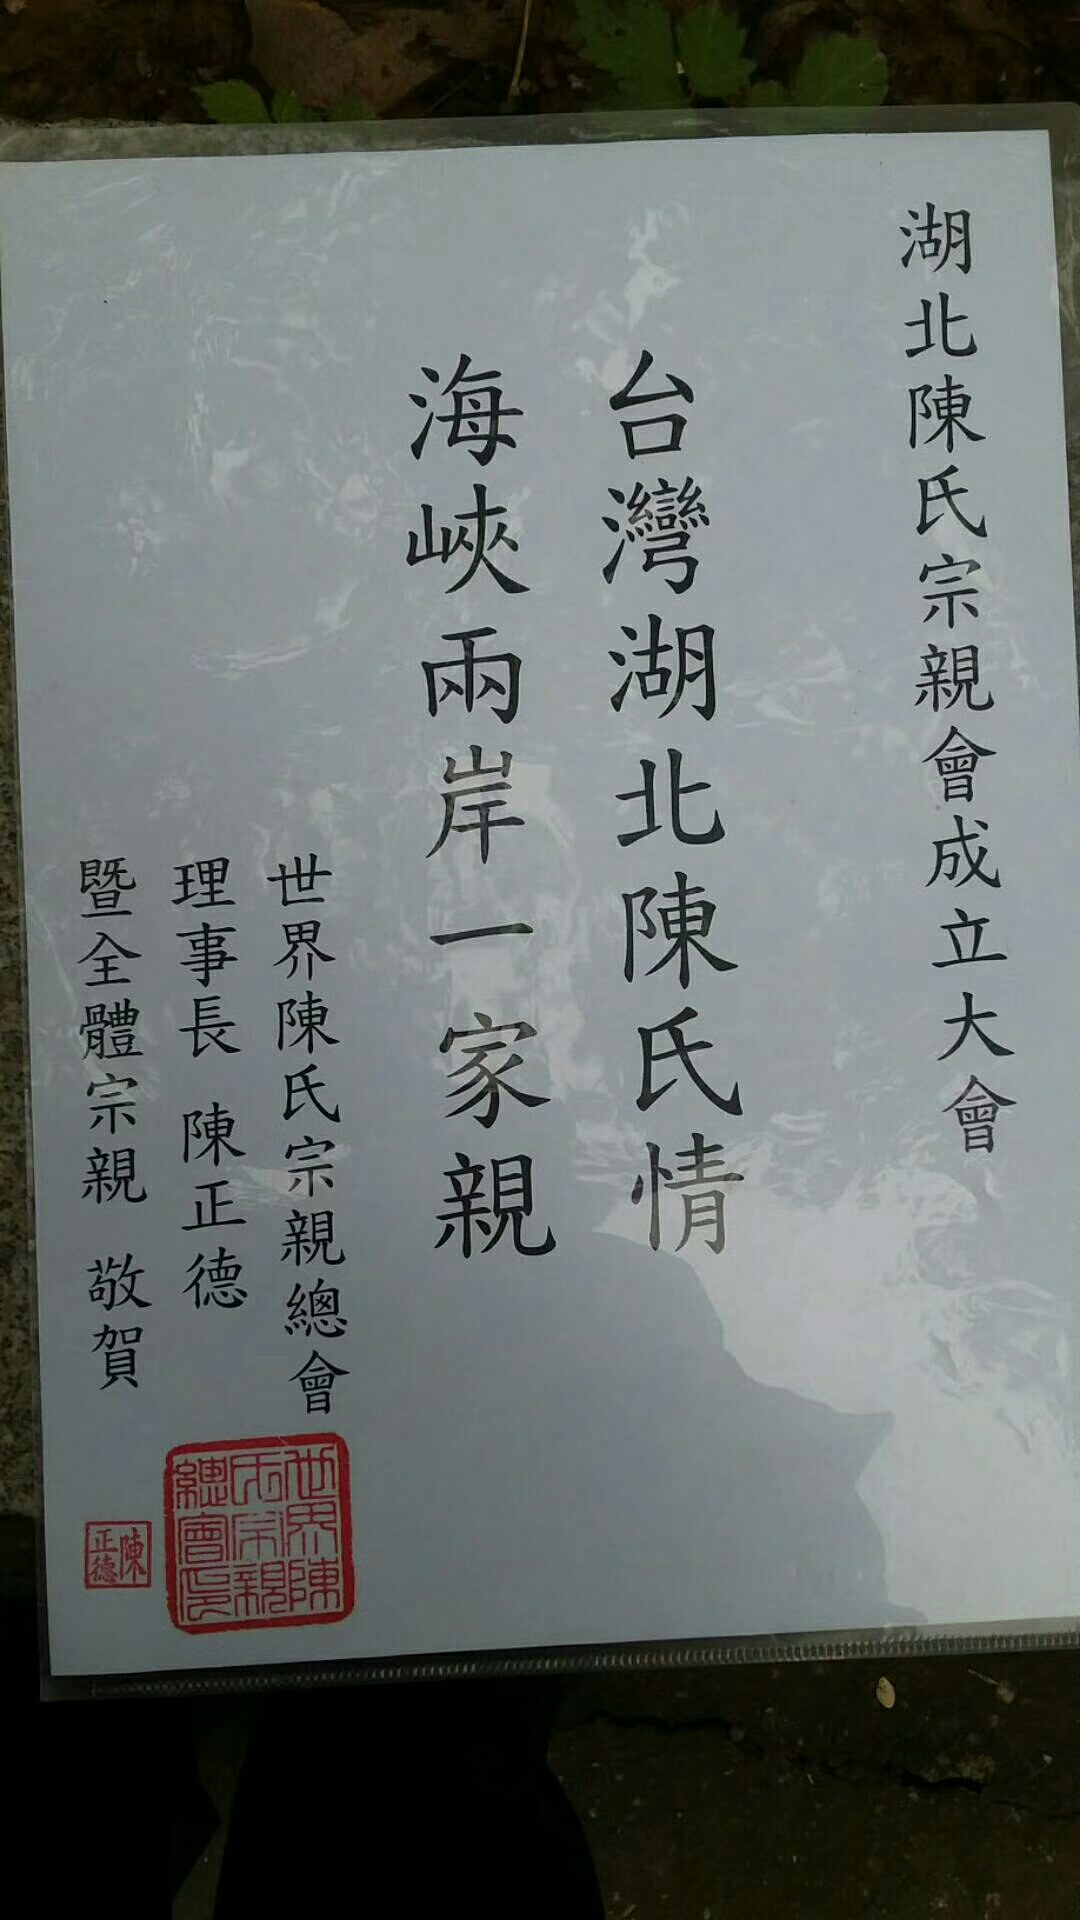 湖北陳氏宗親會成立大會
台灣湖北陳氏情
海峽兩岸一家親
世界陳氏宗親總會
理事長 陳正德
暨全體宗親 敬賀
世界陳
氏宗親
總會印
陳
正德